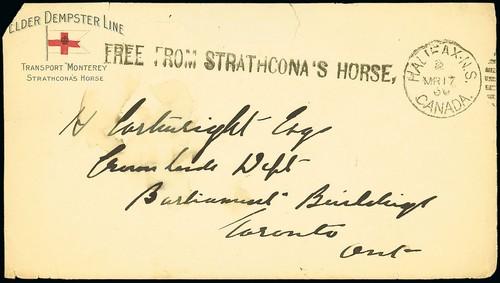 ELDER DEMPSTER LINE
TRANSPORT "MONTEREY"
STRATHCONA'S HORSE
FREE FROM STRATHCONA'S HORSE,
HALIFAX·N.S.
2
MR 17
00
CANADA.
H Cartwright Esq
Crown Lands Dept
Parliament Buildings
Toronto
Ont